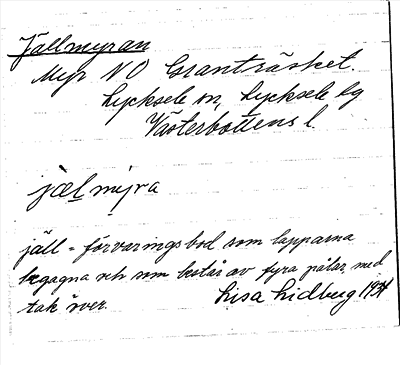 Jällmyran
Myr NO Granträsket.
Lycksele sn, Lycksele lg
Västerbottens l.
jælmyra
jäll = förvaringsbod som lapparna
begagna och som består av fyra pålar med
tak över. Lisa Lidberg 1934